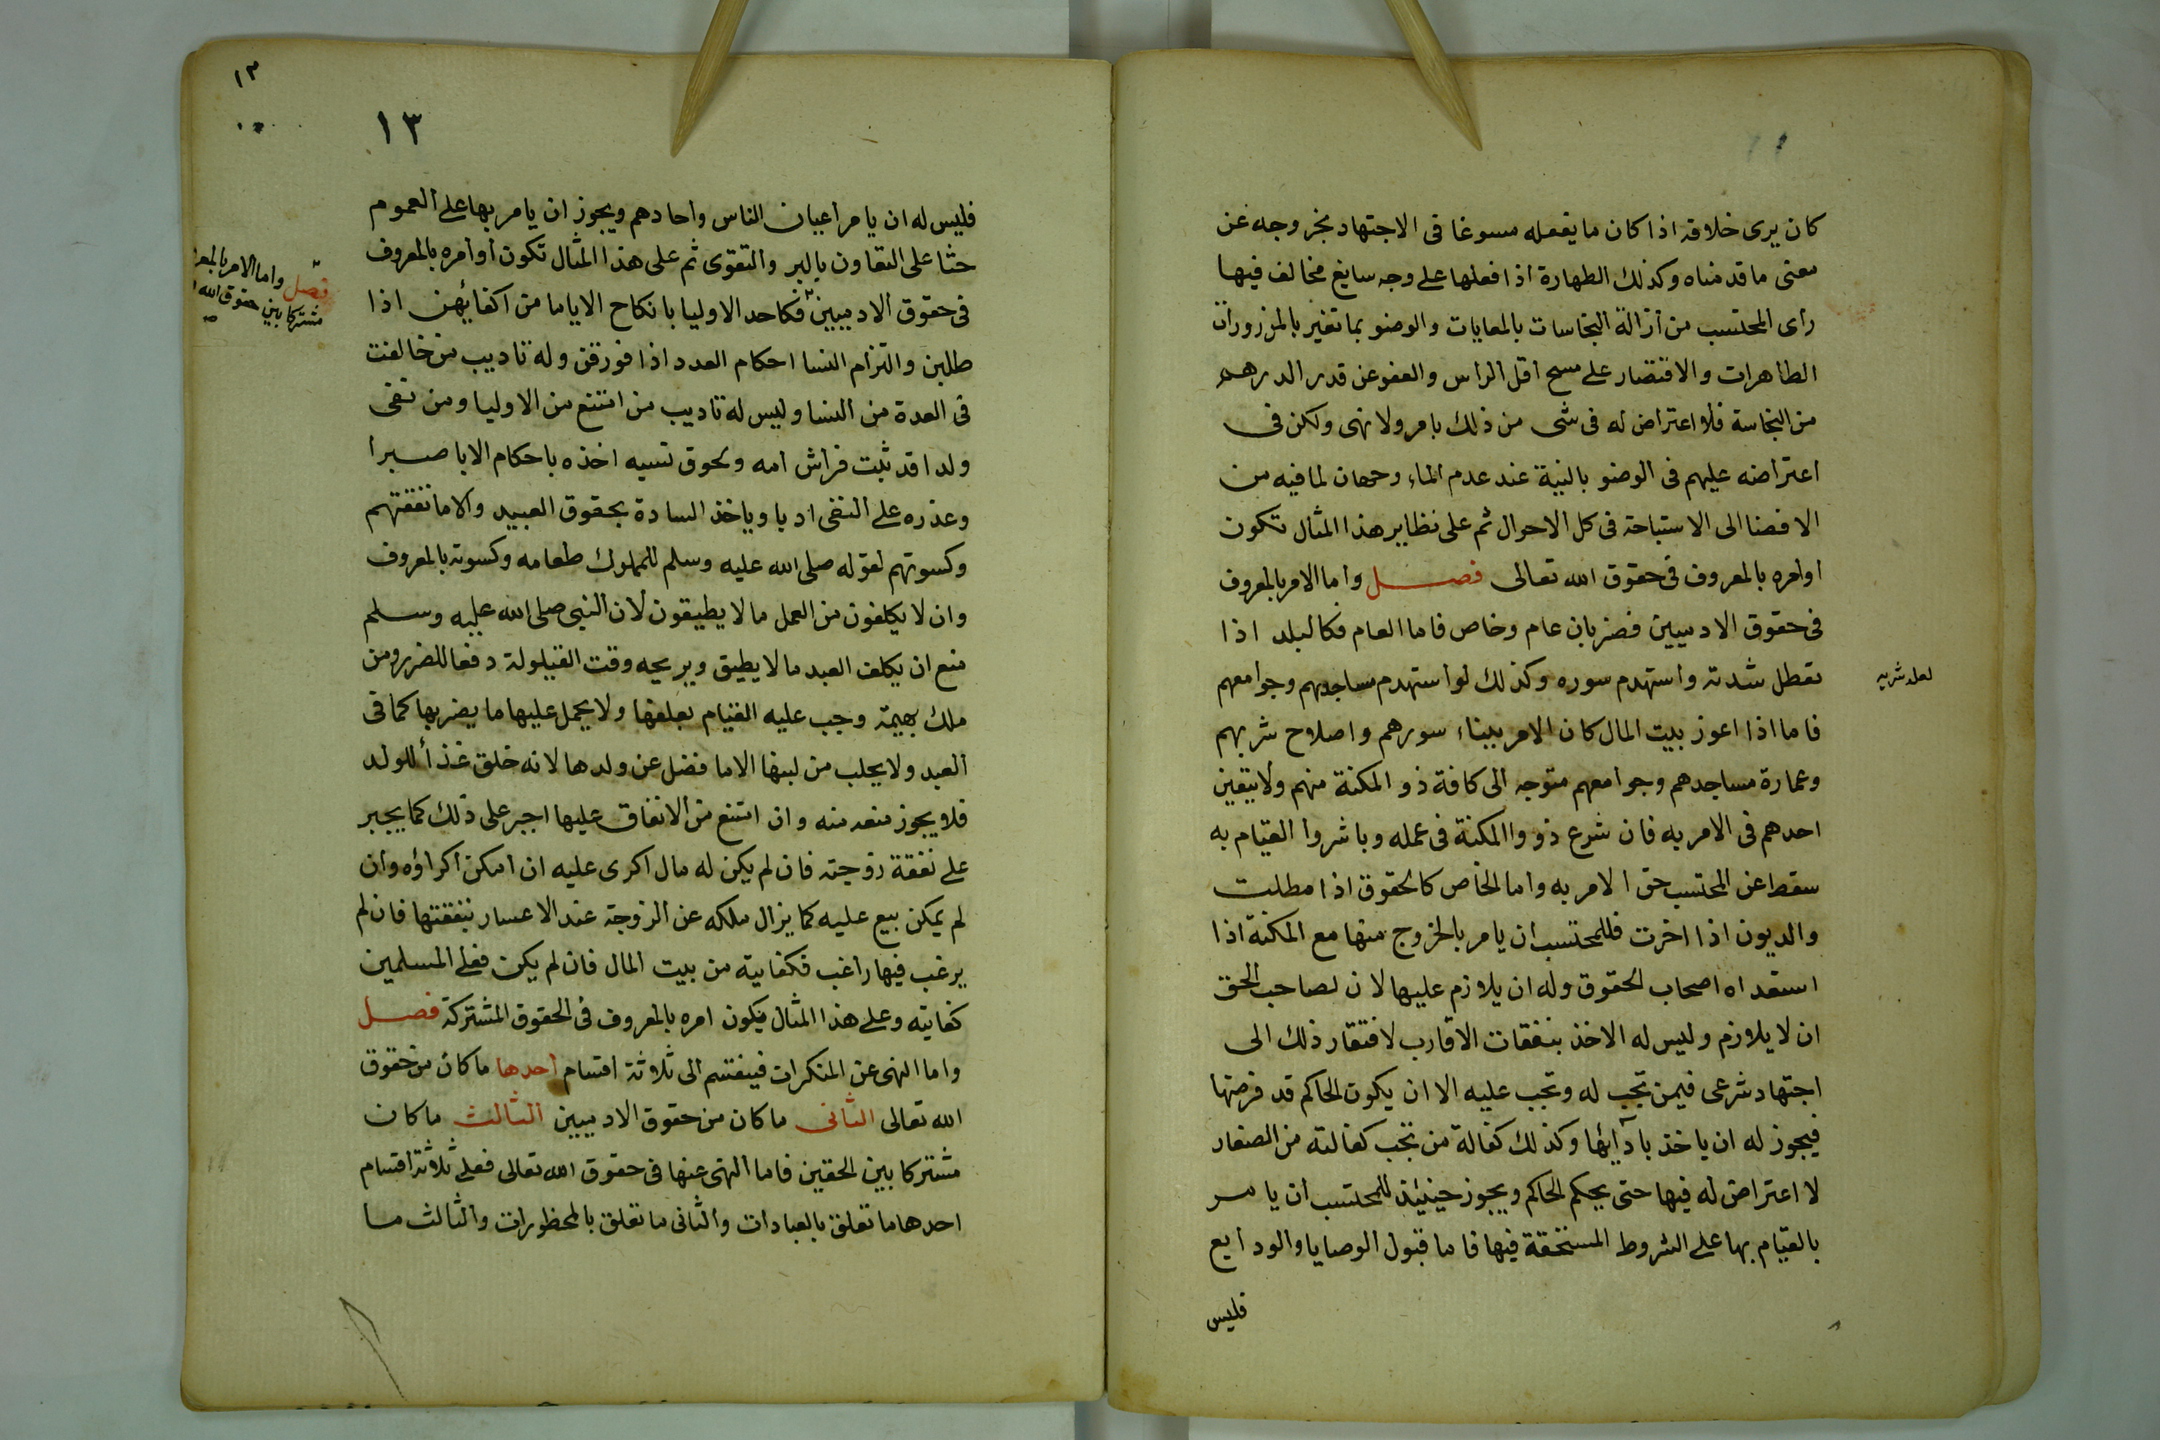 كان يرى خلافه اذا كان ما يفعله مسوغا فى الاجتهاد بخروجه عن
معنى ما قدمناه وكذلك الطهارة اذا فعلها على وجه سايغ مخالف فيها
راى المحتسب من ازالة النجاسات بالمعايات والوضو بما تغير بالمزرورات
الطاهرات والاقتصار على مسح اقل الراس والعفو عن قدر الدرهم
من النجاسة فلا اعتراض له فى شى من ذلك بامر ولا نهى ولكن فى
اعتراضه عليهم فى الوضو بالنية عند عدم الماء وجهان لما فيه من
الافضا الى الاستباحة فى كل الاحوال ثم على نظاير هذا المثال تكون
اوامره بالمعروف فى حقوق الله تعالى فصل واما الامر بالمعروف
فى حقوق الادميين فضربان عام وخاص فاما العام فكالبلد اذا
تعطل شدته واستهدم سوره وكذلك لو استهدم مساجدهم وجوامعهم
لعله شربه
فاما اذا اعوز بيت المال كان الامر ببناء سورهم واصلاح شربهم
وعمارة مساجدهم وجوامعهم متوجه الى كافة ذو المكنة منهم ولا يتعين
احدهم فى الامر به فان شرع ذووا المكنة فى عمله وباشروا القيام به
سقط عن المحتسب حق الامر به واما الخاص كالحقوق اذا مطلت
والديون اذا اخرت فللمحتسب ان يامر بالخروج منها مع المكنة اذا
استعداه اصحاب الحقوق وله ان يلازم عليها لان لصاحب الحق
ان لا يلازم وليس له الاخذ بنفقات الاقارب لافتقار ذلك الى
اجتهاد شرعى فيمن تجب له وتجب عليه الا ان يكون الحاكم قد فرضها
فيجوز له ان ياخذ بادآيها وكذلك كفالة من تجب كفالته من الصغار
لا اعتراض له فيها حتى يحكم الحاكم ويجوز حينئذ للمحتسب ان يامر
بالقيام بها على الشروط المستحقة فيها فاما قبول الوصايا والودايع
فليس
١٣
١٣
فليس له ان يامر اعيان الناس واحادهم ويجوز ان يامر بها على العموم
حثا على التعاون بالبر والتقوى ثم على هذا المثال تكون اوامره بالمعروف
فى حقوق الادميين فكاحد الاوليا بانكاح الاياما من اكفائهن اذا
فصل واما الامر بالمعر
مشتركا بين حقوق الله
طلبن والتزام النسا احكام العدد اذا فورقن وله تاديب من خالفت
فى العدة من النسا وليس له تاديب من امتنع من الاوليا ومن نفى
ولدا قد ثبت فراش امه ولحوق نسبه اخذه باحكام الابا صبرا
وعذره على النفى ادبا وياخذ السادة بحقوق العبيد والاما نفقتهم
وكسوتهم لقوله صلى الله عليه وسلم للمملوك طعامه وكسوته بالمعروف
وان لا يكلفون من العمل ما لا يطيقون لان النبى صلى الله عليه وسلم
منع ان يكلف العبد ما لا يطيق ويريحه وقت القيلولة دفعا للضرر ومن
ملك بهيمة وجب عليه القيام بعلفها ولا يحمل عليها ما يضر بها كما فى
العبد ولا يحلب من لبنها الا ما فضل عن ولدها لانه خلق غذأ للولد
فلا يجوز منعه منه وان امتنع من الانفاق عليها اجبر على ذلك كما يجبر
على نفقة زوجته فان لم يكن له مال اكرى عليه ان امكن اكراؤه وان
لم يمكن بيع عليه كما يزال ملكه عن الزوجة عند الاعسار بنفقتها فان لم
يرغب فيها راغب فكفايته من بيت المال فان لم يكن فعلى المسلمين
كفايته وعلى هذا المثال يكون امره بالمعروف فى الحقوق المشتركة فصل
واما النهى عن المنكرات فينقسم الى ثلاثة اقسام احدها ما كان من حقوق
الله تعالى الثانى ما كان من حقوق الادميين الثالث ما كان
مشتركا بين الحقين فاما النهى عنها فى حقوق الله تعالى فعلى ثلاثة اقسام
احدها ما تعلق بالعبادات والثانى ما تعلق بالمحظورات والثالث ما